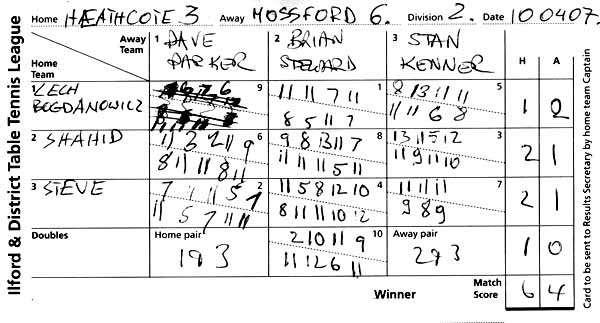 Ilford & District Table Tennis League
Home HEATHCOTE 3 Away MOSSFORD 6. Division 2. Date 100407.
Away Team 1 DAVE PARKER 2 BRIAN STEWARD 3 STAN KENNER H A
Home Team
LECH BOGDANOWICZ 9 1 5 1 2
11 11 7 11 8 13 11 11
8 5 11 7 11 11 6 8
2 SHAHID 6 8 3 2 1
11 3 2 11 9 9 8 13 11 7 13 11 5 12
8 11 11 8 11 11 11 11 5 11 11 9 11 10
3 STEVE 2 4 7 2 1
7 11 11 5 7 11 5 8 12 10 11 11 11
11 5 7 11 11 8 11 11 10 12 9 8 9
Doubles Home pair 10 Away pair 1 0
1 & 3 2 10 11 9 2 & 3
11 12 6 11
Winner Match Score 6 4
Card to be sent to Results Secretary by home team Captain